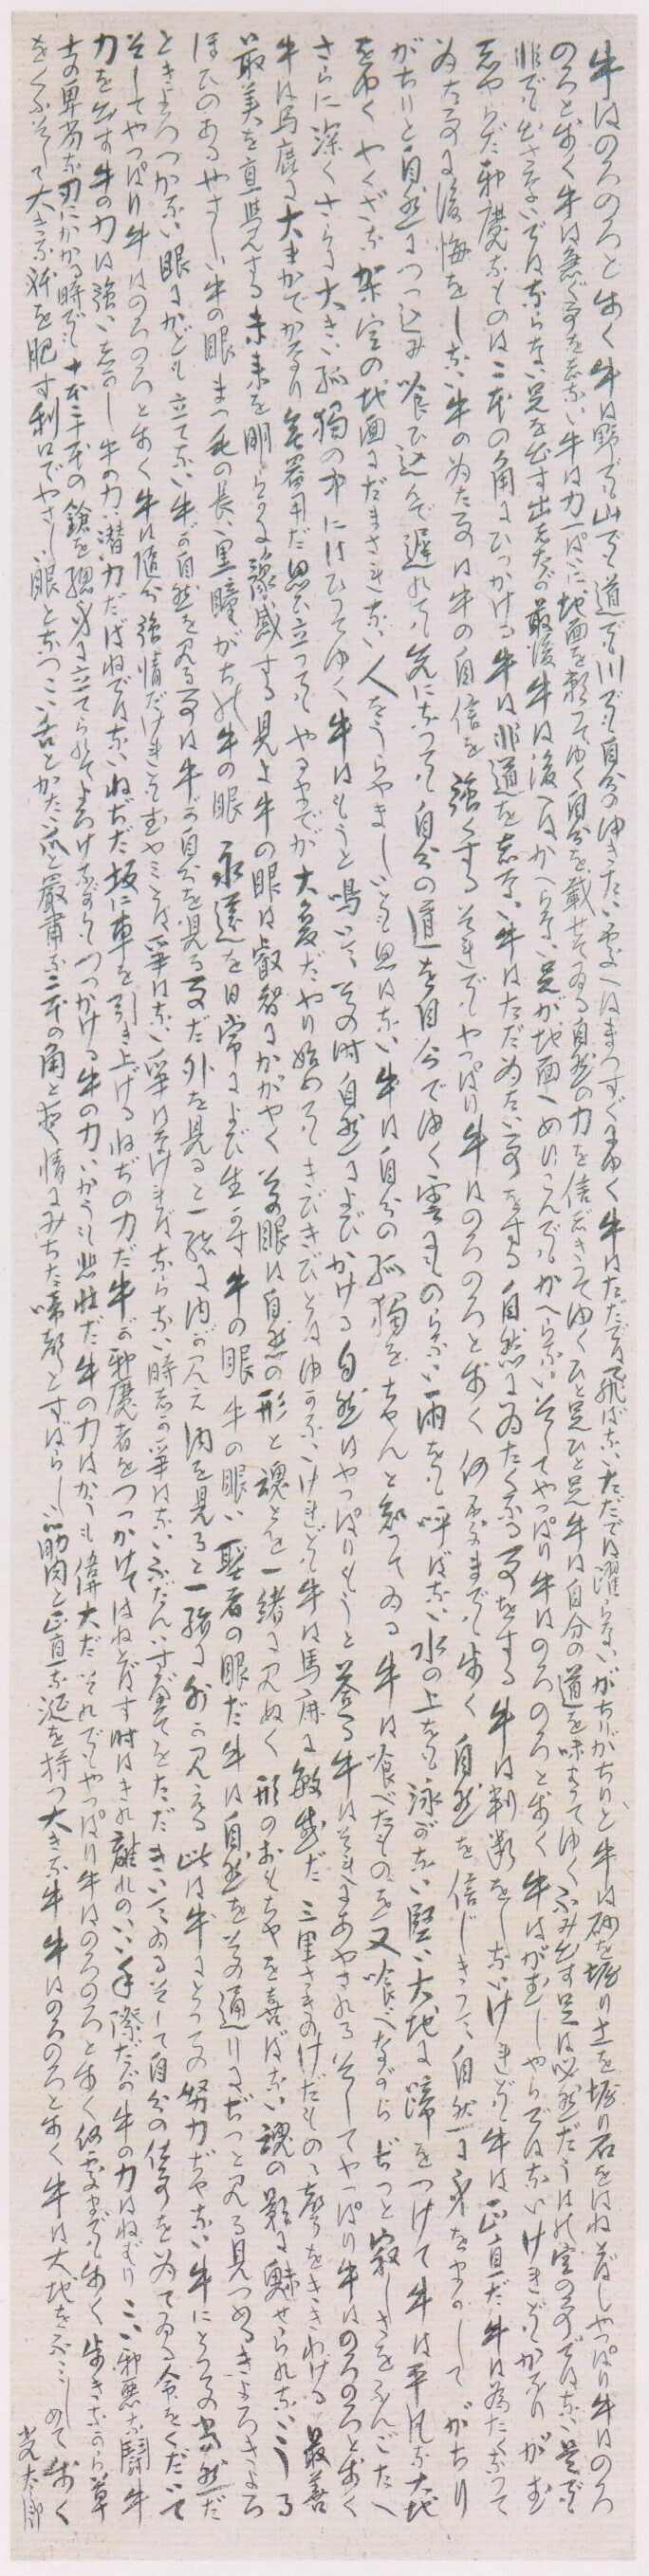 牛はのろのろと歩く牛は野でも山でも道でも川でも自分の行きたい処へはまつすぐにゆく牛はただでは飛ばないただでは躍らないがちりがちりと牛は砂を堀り土を堀り石をはね飛ばしやつぱり牛はのろ
のろと歩く牛は急ぐ事をしない牛は力一ぱいに地面を頼つてゆく自分を載せてゐる自然の力を信じきつてゆくひと足ひと足牛は自分の道を味はつてゆくふみ出す足は必然だうはの空の事ではない是が
非でも出さないではならない足を出す出したが最後牛は後へはかへらない足が地面へめりこんでもかへらないそしてやつぱり牛はのろのろと歩く牛はがむしやらではないけれどもかなりがむ
しやらだ邪魔なものは二本の角にひつかける牛は非道をしない牛はただ為たい事をする自然に為たくなる事をする牛は判断をしないけれども牛は正直だ牛は為たくなつて
為た事に後悔をしない牛の為た事は牛の自信を強くするそれでもやつぱり牛はのろのろと歩く何処までも歩く自然を信じきつて自然に身を任してがちり
がちりと自然につつ込み喰ひ込んで遅れても先になつても自分の道を自分でゆく雲にものらない雨をも呼ばない水の上をも泳がない堅い大地に蹄をつけて牛は平凡な大地
をゆくやくざな架空の地面にだまされない人をうらやましいとも思はない牛は自分の孤独をちやんと知つてゐる牛は喰べたものを又喰べながらぢつと寂しさをふんごたへ
さらに深くさらに大きい孤独の中にはひつてゆく牛はもうと啼いてその時自然によびかける自然はやつぱりもうと答へる牛はそれにあやされるそしてやつぱり牛はのろのろと歩く
牛は馬鹿に大まかでかなり無器用だ思ひ立つてもやるまでが大変だやり始めてもきびきびとは行かないけれども牛は馬鹿に敏感だ三里さきのけだものの声をききわける最善
最美を直覚する未来を明らかに予感する見よ牛の眼は叡智にかがやくその眼は自然の形と魂とを一緒に見ぬく形のおもちやを喜ばない魂の影に魅せられないうる
ほひのあるやさしい牛の眼まつ毛の長い黒瞳がちの牛の眼永遠を日常によび生かす牛の眼牛の眼は聖者の眼だ牛は自然をその通りにぢつと見る見つめるきよろきよろ
ときよろつかない眼にかども立てない牛が自然を見る事は牛が自分を見る事だ外を見ると一緒に内が見え内を見ると一緒に外が見える此は牛にとつての努力ぢやない牛にとつての当然だ
そしてやつぱり牛はのろのろと歩く牛は随分強情だけれどもむやみとは争はない争はなければならない時しか争はないふだんはすべてをただきいてゐるそして自分の仕事を為てゐる命をくだいて
力を出す牛の力は強いしかし牛の力は潜力だばねではないねぢだ坂に車を引き上げるねぢの力だ牛が邪魔者をつつかけてはねとばす時はきれ離れのいい手際だが牛の力はねばりつこい邪悪な闘牛
士の卑劣な刃にかかる時でも十本二十本の鎗を総身に立てられてよろけながらもつつかける牛の力はかうも悲壮だ牛の力はかうも偉大だそれでもやつぱり牛はのろのろと歩く何処までも歩く歩きながら草
をくふそして大きな体を肥す利口でやさしい眼となつこい舌とかたい爪と厳粛な二本の角と愛情にみちた啼声とすばらしい筋肉と正直な涎を持つ大きな牛牛はのろのろと歩く牛は大地をふみしめて歩く
光太郎